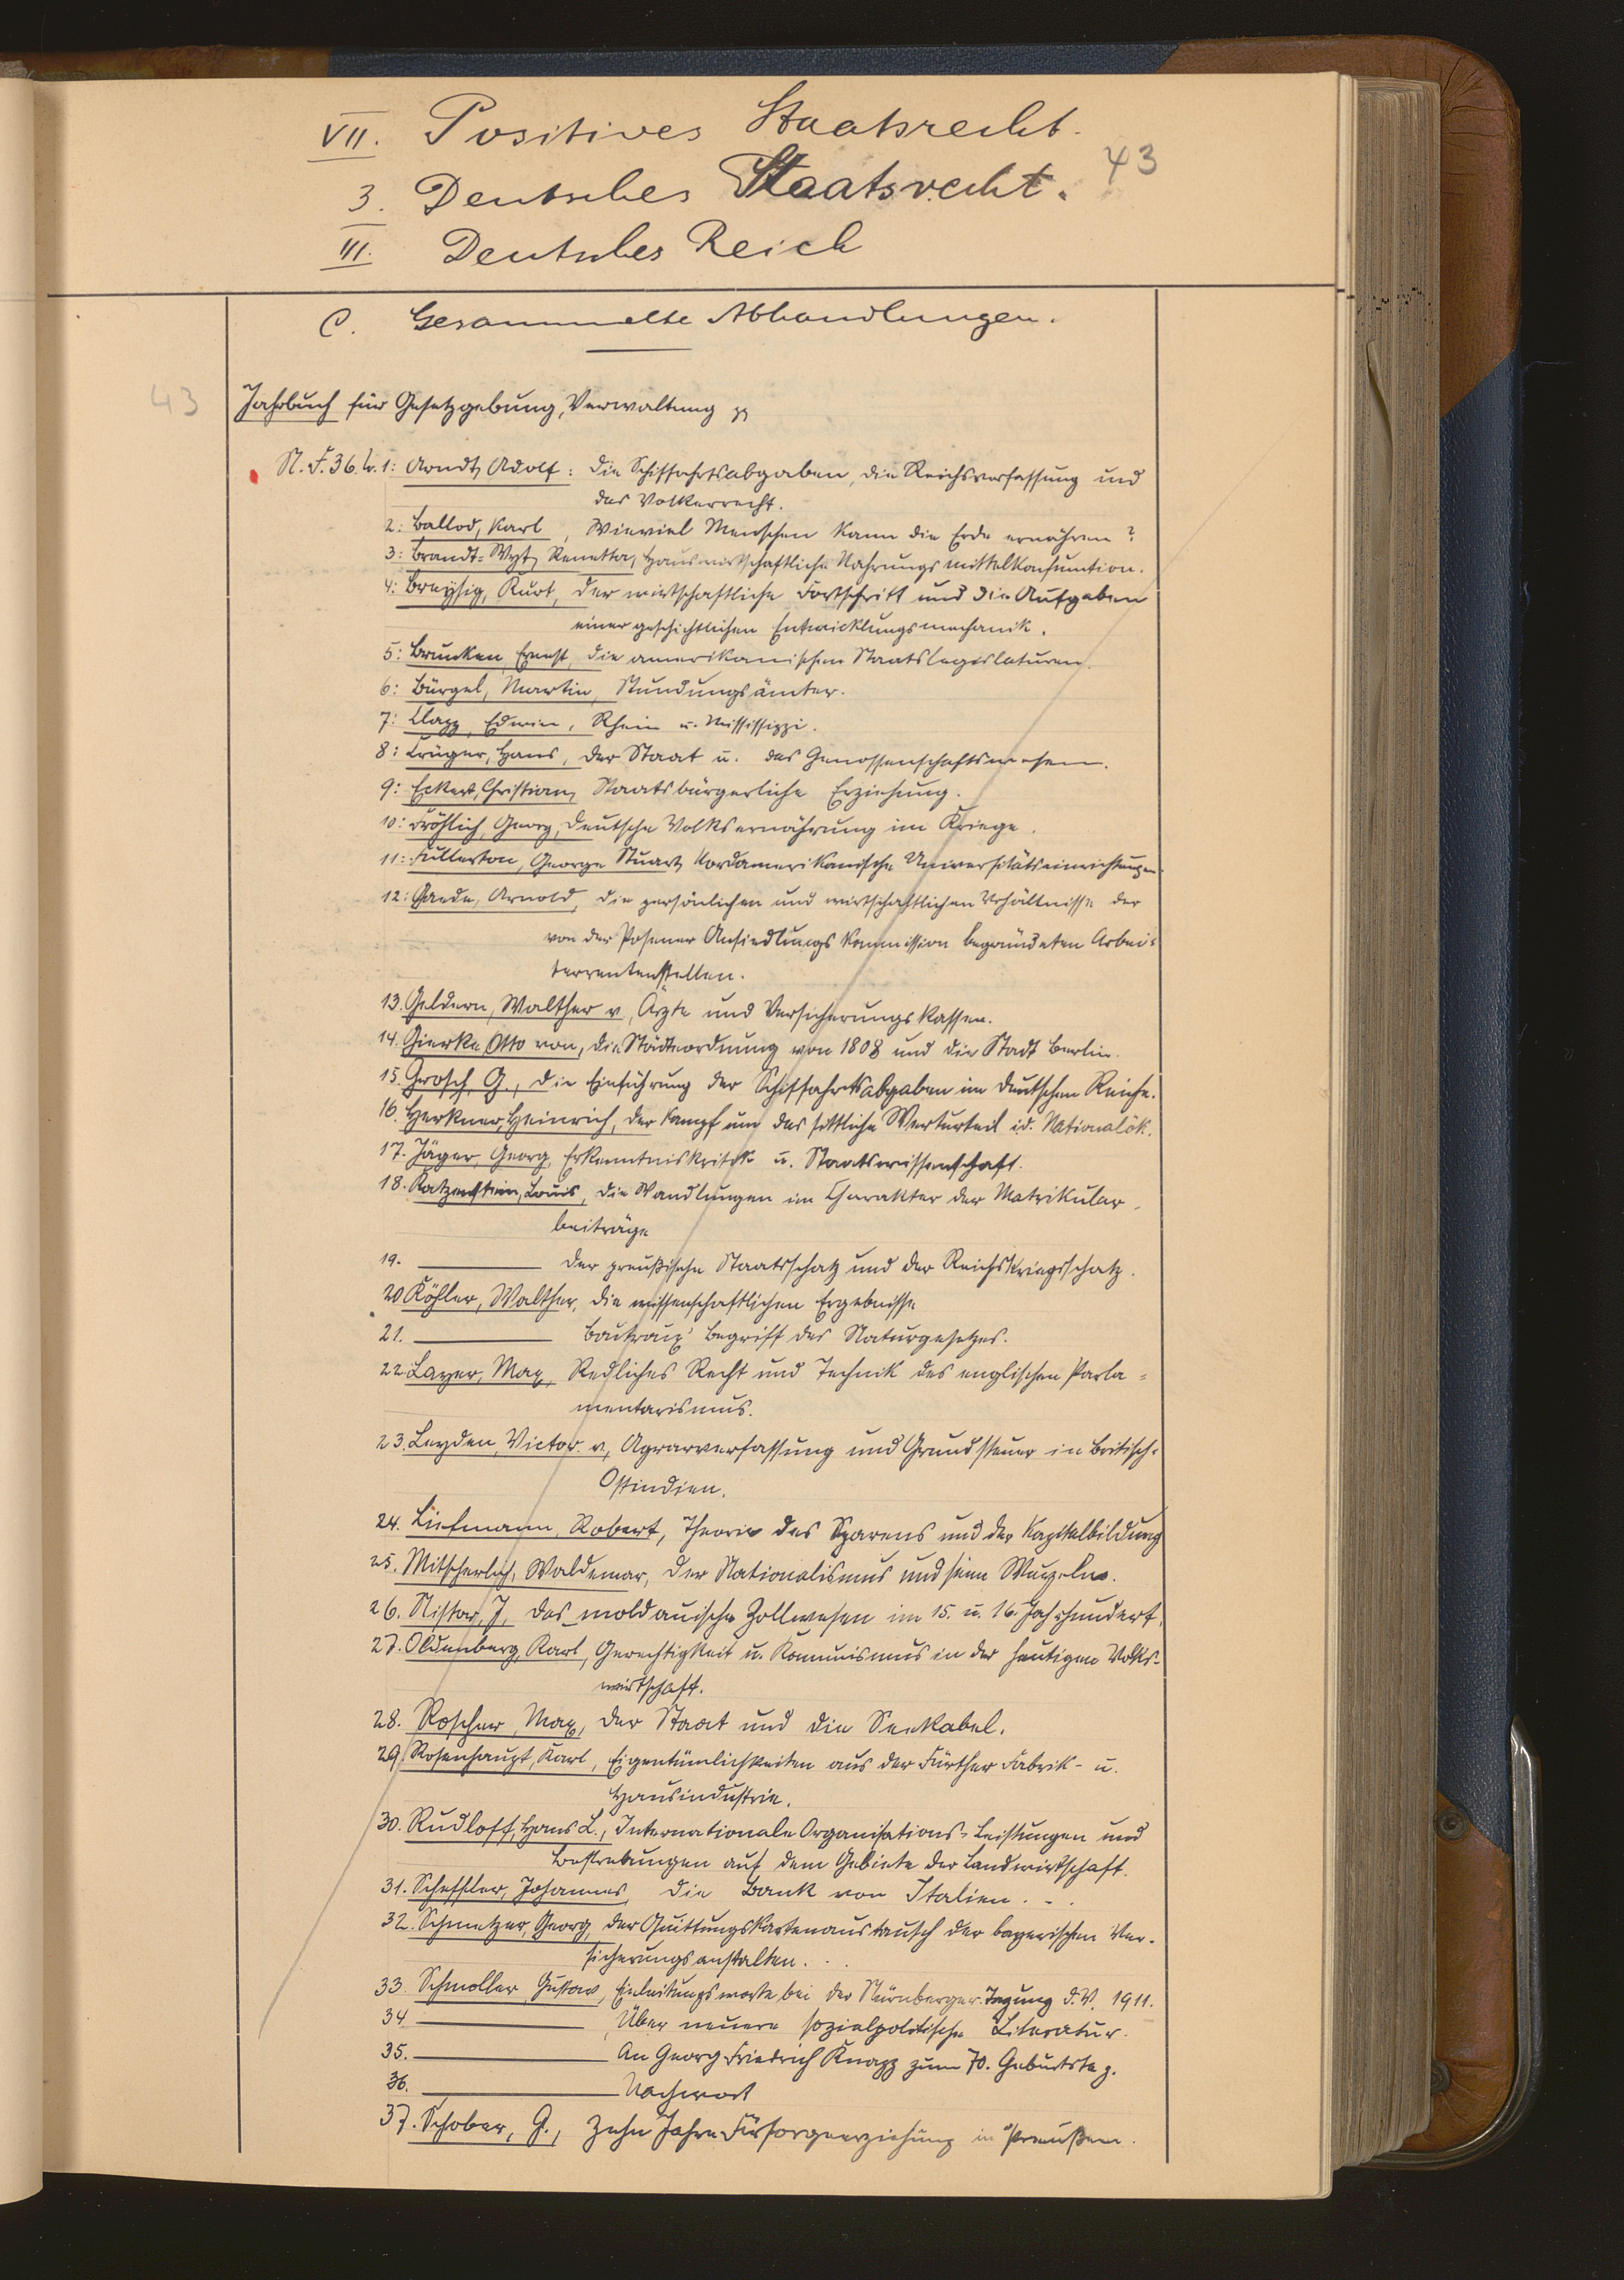 VII. Positives Staatsrecht.
43
3. Deutsches Staatsrecht.
III. Deutsches Reich
C. Gesammelte Abhandlungen.
43
Jahrbuch für Gesetzgebung, Verwaltung
N.F. 36. 1: Arndt, Adolf: Die Schiffahrtsabgaben, die Reichsverfassung und
das Völkerrecht.
2: Ballod, Karl, Wieviel Menschen kann die Erde ernähren?
3: Brandt-Wyt, Renetta, Hauswirtschaftliche Nahrungsmittelkonsumtion.
4: Breysig, Kurt, Der wirtschaftliche Fortschritt und die Aufgaben
einer geschichtlichen Entwicklungsmechanik.
5: Bruncken, Ernst, Die amerikanischen Staatslegislaturen.
6: Bürgel, Martin, Stundungsämter.
7: Clapp, Edwin, Rhein u. Mississippi.
8: Crüger, Hans, Der Staat u. das Genossenschaftswesen.
9: Eckert, Christian, Staatsbürgerliche Erziehung.
10: Fröhlich, Georg, Deutsche Volksernährung im Kriege.
11: Fullerton, George Stuart, Nordamerikanische Universitätseinrichtungen.
12: Gaede, Arnold, Die persönlichen und wirtschaftlichen Verhältnisse der
von der Posener Ansiedlungskommission begründeten Arbei-
terrentenstellen.
13. Geldern, Walther v., Ärzte und Versicherungskassen.
14. Gierke, Otto von, Die Städteordnung von 1808 und die Stadt Berlin.
15. Grosch, G., Die Einführung der Schiffahrtsabgaben im deutschen Reiche.
16. Herkner, Heinrich, Der Kampf um das sittliche Werturteil i.d. Nationalök.
17. Jäger, Georg, Erkenntniskritik u. Staatswissenschaft.
18. Katzenstein, Louis, Die Wandlungen im Charakter der Matrikular-
beiträge
19. ——— Der preußische Staatsschatz und der Reichskriegsschatz.
20 Köhler, Walther, Die wissenschaftlichen Ergebnisse
21. ——— Boutroux' Begriff des Naturgesetzes.
22. Layer, Max, Redliches Recht und Technik des englischen Parla-
mentarismus.
23. Leyden, Victor v., Agrarverfassung und Grundsteuer in Britisch-
Ostindien.
24. Liefmann, Robert, Theorie des Sparens und der Kapitalbildung
25. Mitscherlich, Waldemar, Der Nationalismus und seine Wurzeln.
26. Nistor, J., Das moldauische Zollwesen im 15. u. 16. Jahrhundert.
27. Oldenberg, Karl, Gerechtigkeit u. Kommunismus in der heutigen Volks-
wirtschaft.
28. Roscher, Max, Der Staat und die Seekabel.
29. Rosenhaupt, Karl, Eigentümlichkeiten aus der Fürther Fabrik- u.
Hausindustrie.
30. Rudloff, Hans L., Internationale Organisations-Leistungen und
Bestrebungen auf dem Gebiete der Landwirtschaft.
31. Scheffler, Johannes, Die Bank von Italien.
32. Schmetzer, Georg, Der Quittungskartenaustausch der bayerischen Ver-
sicherungsanstalten.
33. Schmoller, Gustav, Einleitungsworte bei der Nürnberger Tagung d.V. 1911.
34. ——— Über neuere sozialpolitische Literatur.
35. ——— An Georg Friedrich Knapp zum 70. Geburtstag.
36. ——— Nachwort
37. Schober, G., Zehn Jahre Fürsorgeerziehung in Preußen.